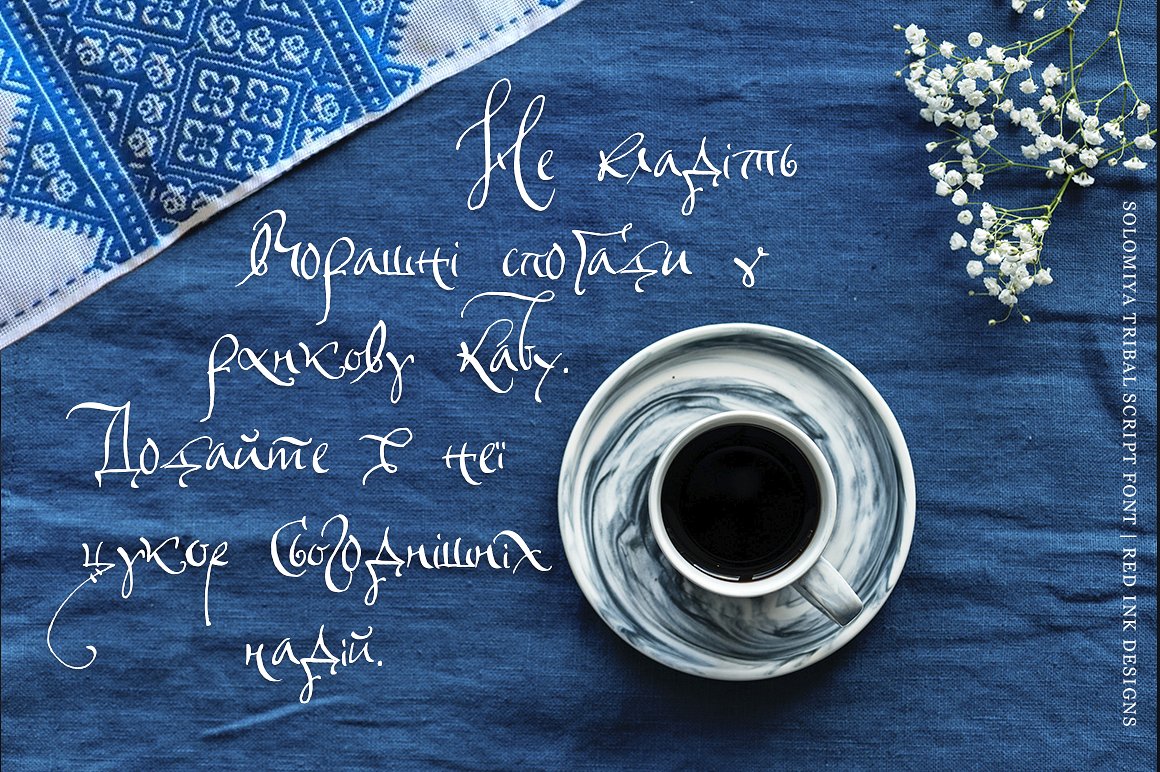 Не кладіть
вчорашні спогади у
ранкову каву.
Додайте в неї
цукор сьогоднішніх
надій.
SOLOMIYA TRIBAL SCRIPT FONT | RED INK DESIGNS